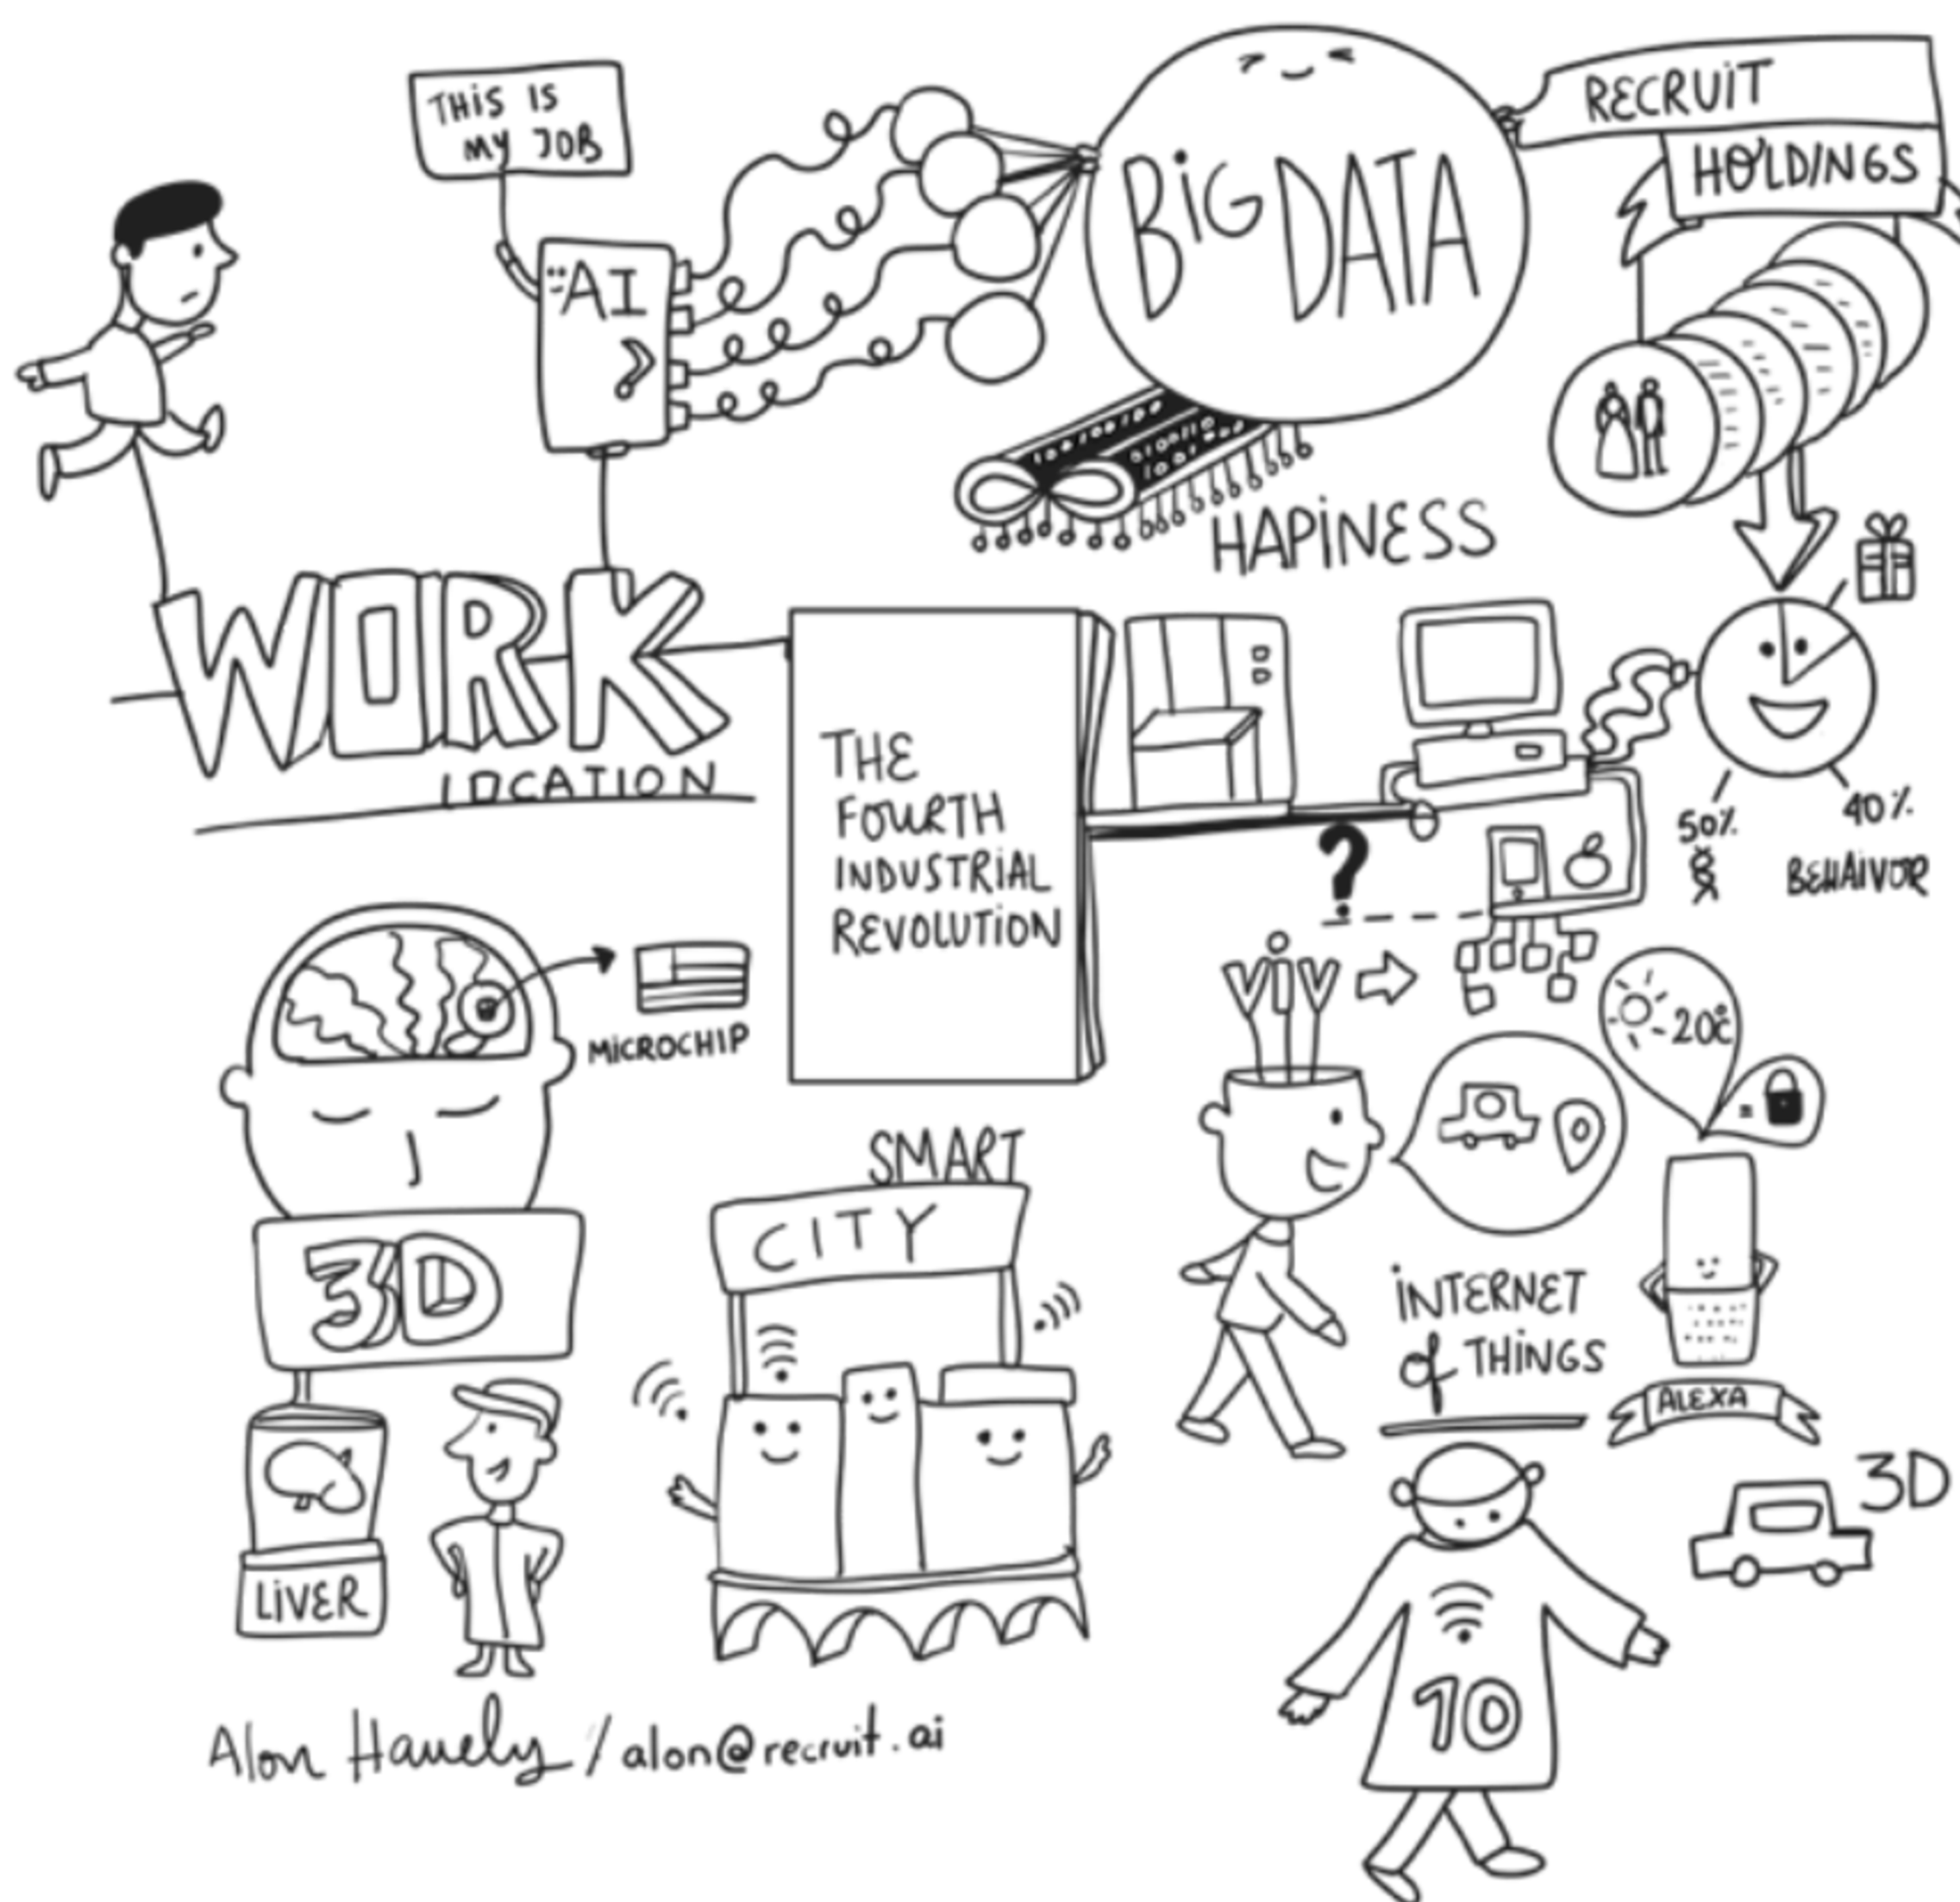 THIS IS
MY JOB
AI
BIG DATA
RECRUIT
HOLDINGS
HAPINESS
WORK
LOCATION
THE
FOURTH
INDUSTRIAL
REVOLUTION
?
50%
40%
BEHAIVOR
MICROCHIP
VIV
20°C
SMART
CITY
3D
INTERNET
of THINGS
ALEXA
LIVER
3D
10
Alon Hauely / alon@recruit.ai